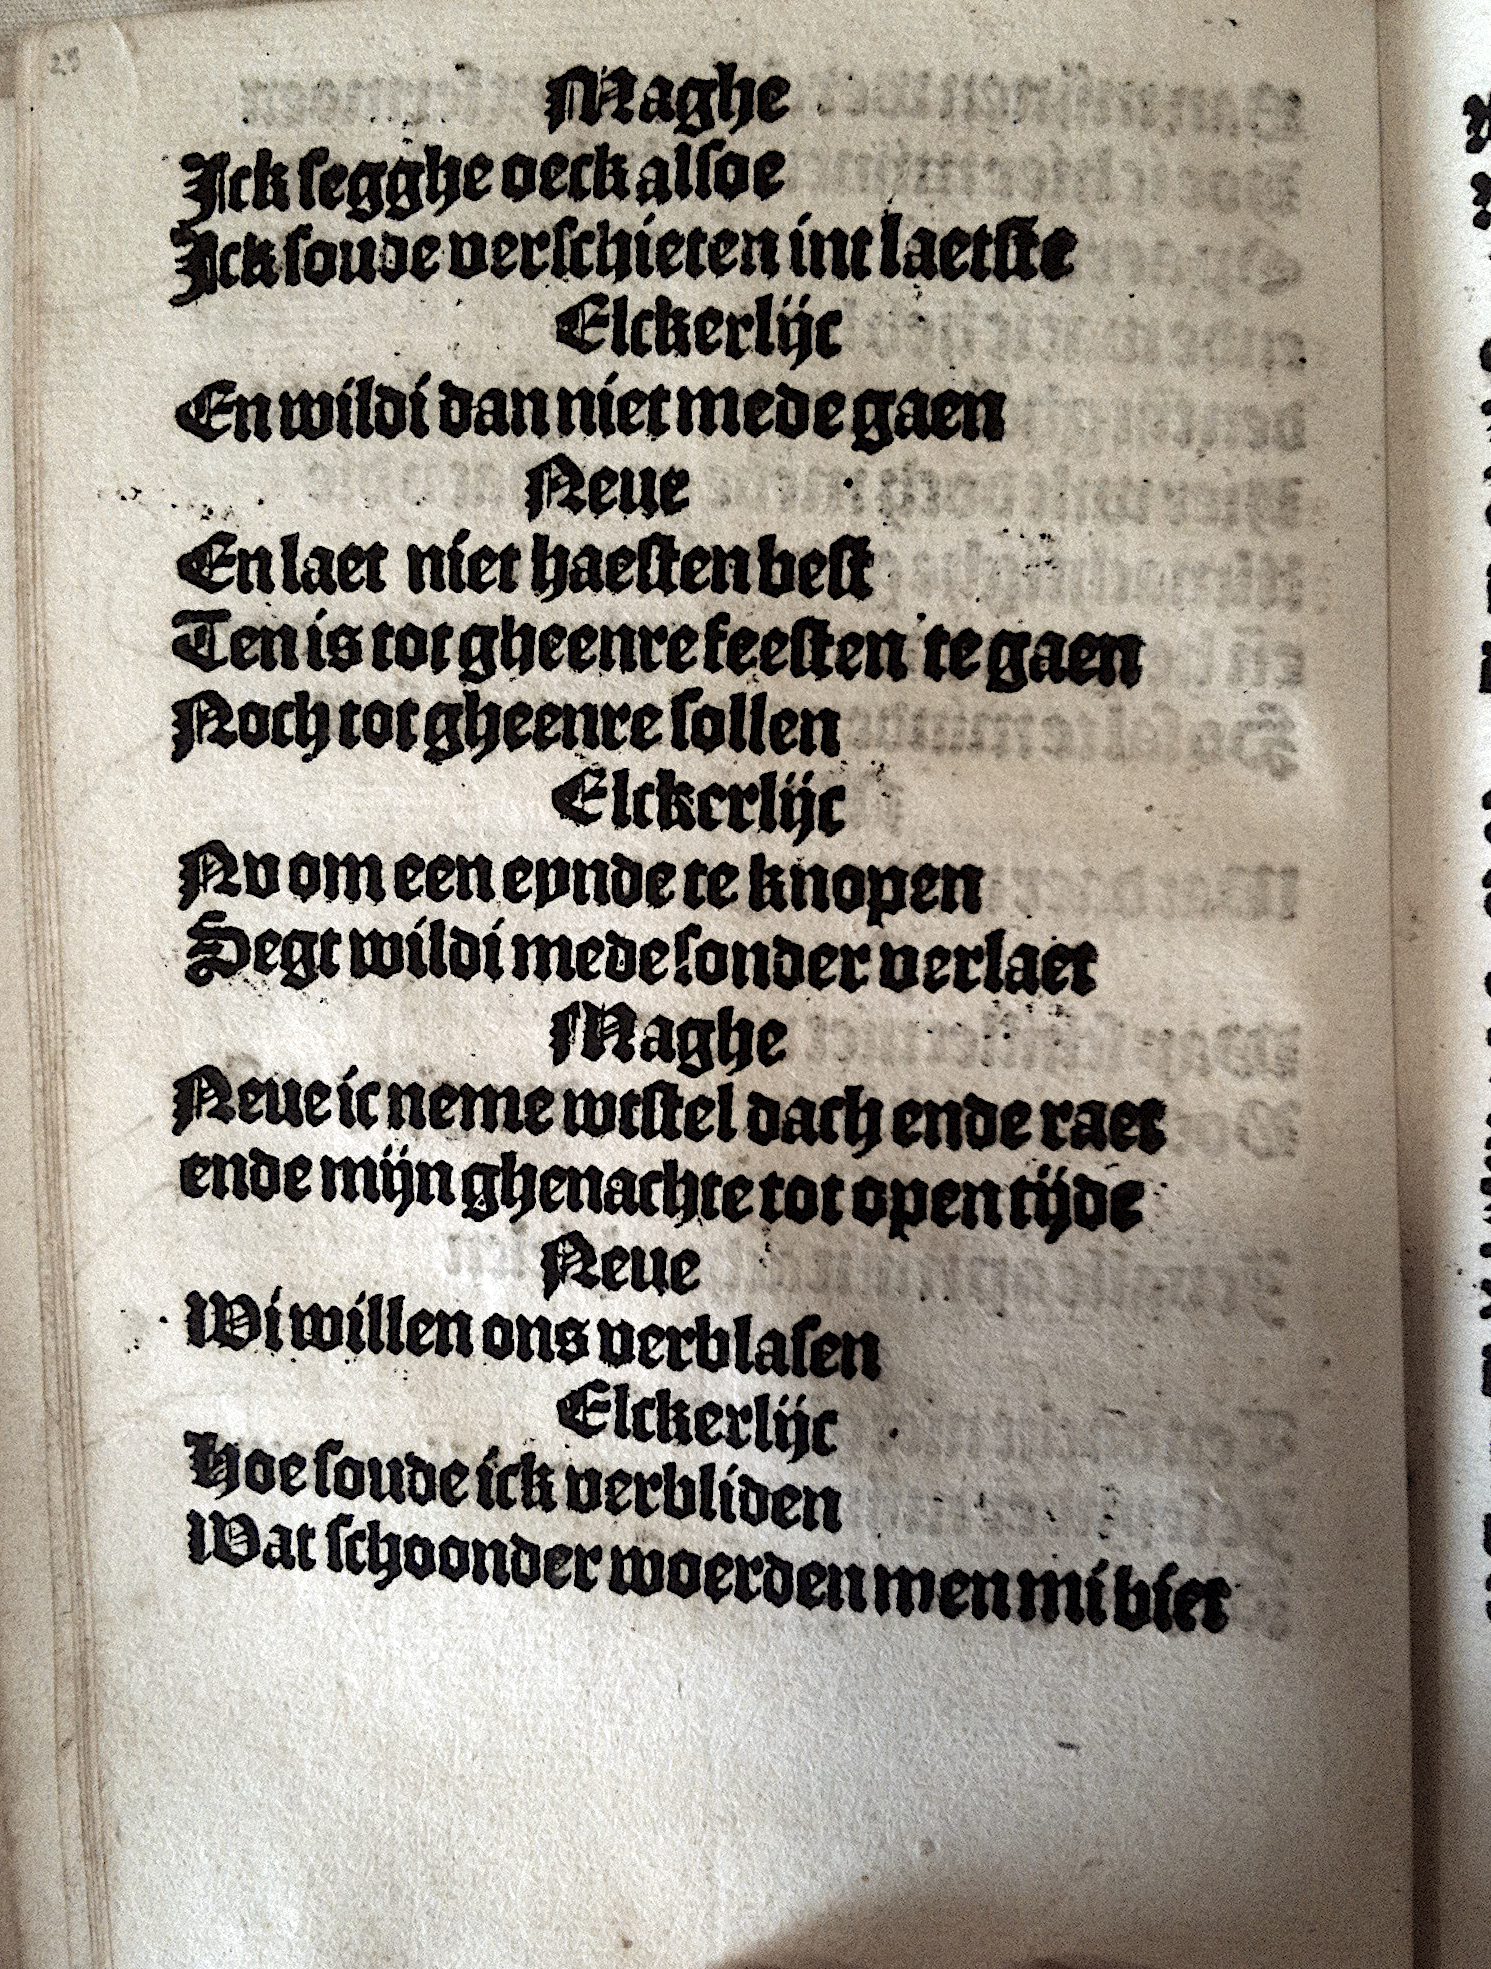 Maghe
Ick segghe oeck alsoe
Ick soude verschieten int laetste
Elckerlijc
En wildi dan niet mede gaen
Neue
En laet niet haesten best
Ten is tot gheenre feesten te gaen
Noch tot gheenre sollen
Elckerlijc
Nv om een eynde te knopen
Segt wildi mede sonder verlaet
Maghe
Neue ic neme wtstel dach ende raet
ende mijn ghenachte tot open tijde
Neue
Wi willen ons verblasen
Elckerlijc
Hoe soude ick verbliden
Wat schoonder woerden men mi biet